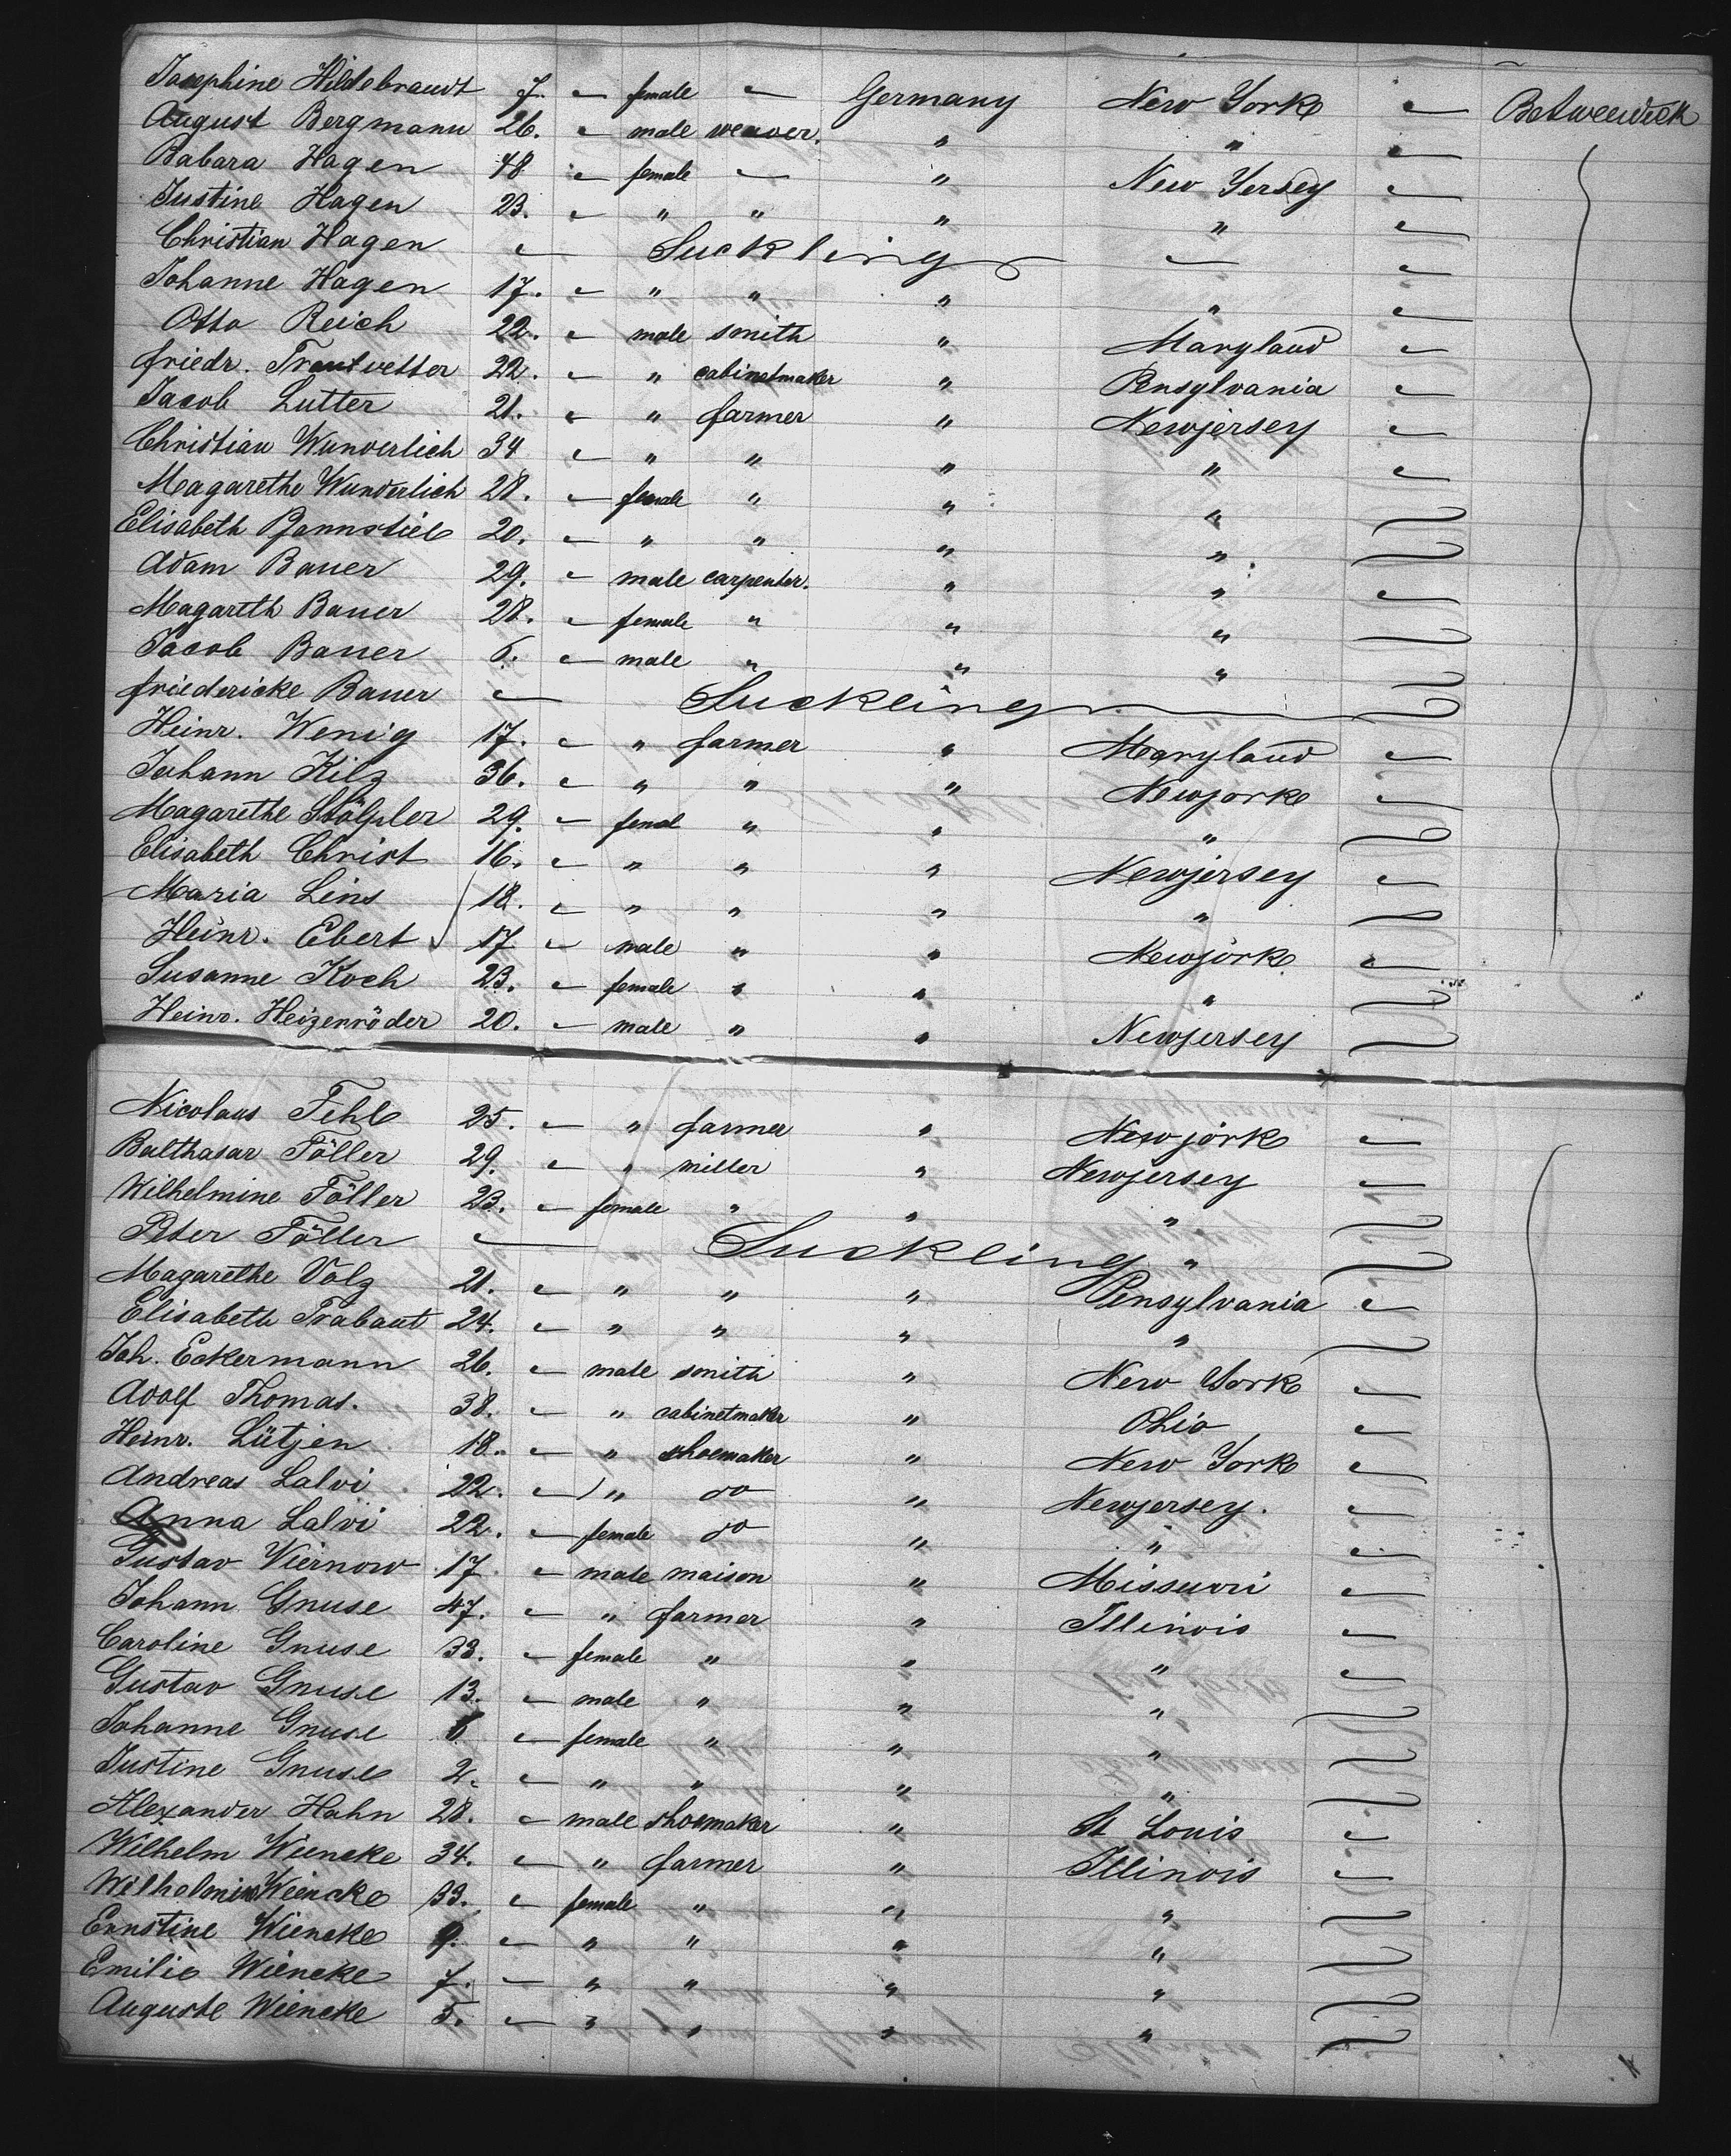 Josephine Hildebrandt 7. — female — Germany New York — Betweendeck
August Bergmann 26. — male weaver. " " —
Babara Hagen 48 — female — " New Yersey —
Justine Hagen 23. — " " " " —
Christian Hagen — Suckling — —
Johanne Hagen 17. — " " " " —
Otto Reich 22. — male smith " Maryland —
Friedr. Trautvetter 22. — " cabinetmaker " Pensylvania —
Jacob Lutter 21. — " farmer " Newjersey —
Christian Wunderlich 34 — " " " " —
Magarethe Wunderlich 28. — female " " "
Elisabeth Pfannstiel 20. — " " " "
Adam Bauer 29. — male carpenter. " " —
Magareth Bauer 28. — female " " "
Jacob Bauer 6. — male " " "
Friedericke Bauer — Suckling
Heinr. Wenig 17. — " farmer " Maryland —
Johann Kilz 36. — " " " Newjork —
Magarethe Stölpler 29. — femal " " "
Elisabeth Christ 16. — " " " Newjersey —
Maria Lins 18. — " " " "
Heinr. Ebert 17 — male " " Newjörk —
Susanne Koch 23. — female " " "
Heinr. Heizenröder 20. — male " " Newjersey
Nicolaus Fehl 25. — " farmer " Newjörk —
Balthasar Töller 29. — " miller " Newjersey —
Wilhelmine Töller 23. — female " " "
Peter Töller — Suckling "
Magarethe Volz 21. — " " " Pensylvania —
Elisabeth Trabant 24. — " " " "
Joh. Eckermann 26. — male smith " New York —
Adolf Thomas. 38. — " cabinetmaker " Ohio —
Heinr. Lütjen 18. — " shoemaker " New York —
Andreas Lalvi 22. — " do " Newjersey. —
Anna Lalvi 22. — female do " " —
Gustav Viernow 17 — male maison " Missuori —
Johann Gnuse 47. — " farmer " Illinois —
Caroline Gnuse 33. — female " " " —
Gustav Gnuse 13. — male " " "
Johanne Gnuse 6 — female " " "
Justine Gnuse 2. — " " " "
Alexander Hahn 28. — male shoemaker " St Louis —
Wilhelm Wiencke 34. — " farmer " Illinois —
Wilhelmine Wiencke 33. — female " " "
Ernstine Wiencke 9. — " " " "
Emilie Wiencke 7. — " " " "
Auguste Wiencke 5. — " " " "